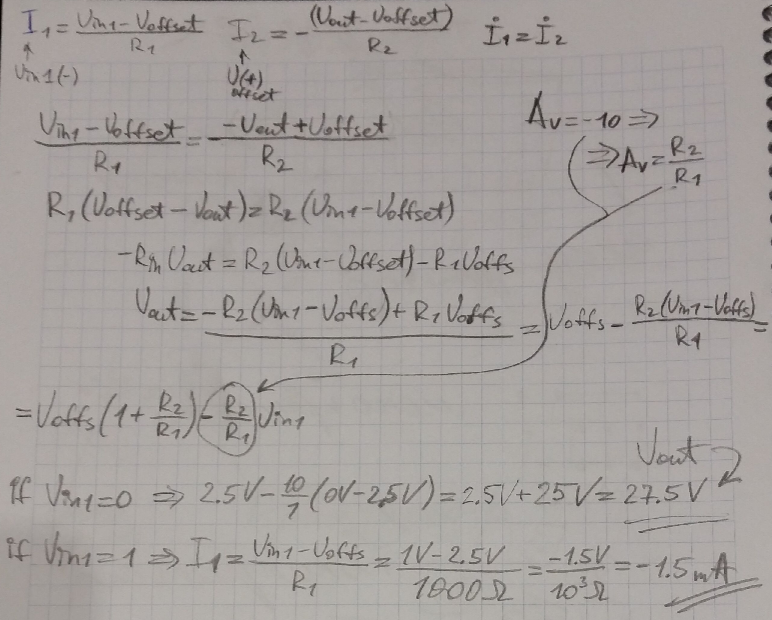 I₁ = (Vin1 - Voffset)/R₁   I₂ = -(Vout - Voffset)/R₂   İ₁ = İ₂
↑ Vin1(-)   ↑ V(+) offset
(Vin1 - Voffset)/R₁ = (-Vout + Voffset)/R₂   Av = -10 ⇒
⇒ Av = R₂/R₁
R₁(Voffset - Vout) = R₂(Vin1 - Voffset)
-Rin Vout = R₂(Vin1 - Voffset) - R₁Voffs
Vout = (-R₂(Vin1 - Voffs) + R₁Voffs)/R₁ = Voffs - R₂(Vin1 - Voffs)/R₁ =
= Voffs(1 + R₂/R₁) - R₂/R₁ Vin1
Vout
if Vin1 = 0 ⇒ 2.5V - 10/1 (0V - 2,5V) = 2.5V + 25V = 27.5V
if Vin1 = 1 ⇒ I₁ = (Vin1 - Voffs)/R₁ = (1V - 2.5V)/1000Ω = -1.5V/10³Ω = -1.5mA